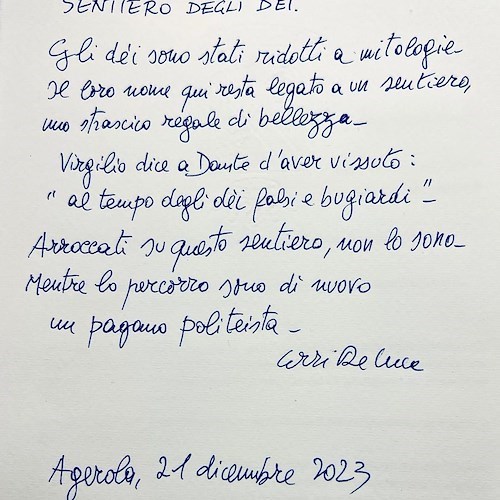 SENTIERO DEGLI DEI.
Gli dèi sono stati ridotti a mitologie
Il loro nome qui resta legato a un sentiero,
uno strascico regale di bellezza_
Virgilio dice a Dante d'aver vissuto :
" al tempo degli dèi falsi e bugiardi "_
Arroccati su questo sentiero, non lo sono_
Mentre lo percorro sono di nuovo
un pagano politeista_
Erri De Luca
Agerola, 21 dicembre 2023